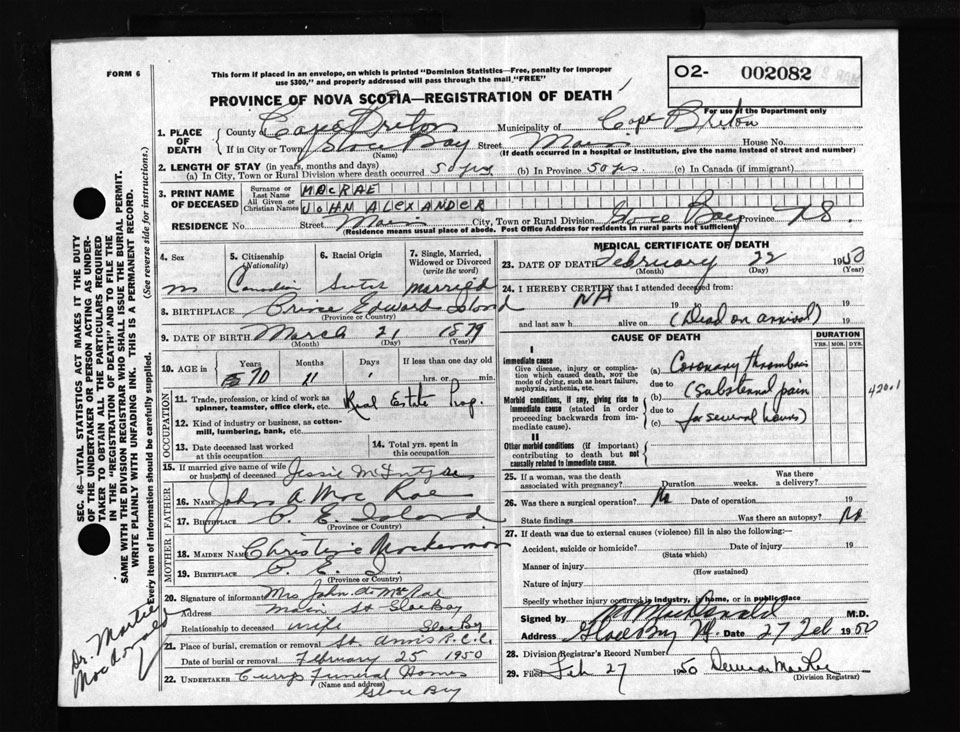 FORM 6
This form if placed in an envelope, on which is printed "Dominion Statistics—Free, penalty for improper
use $300," and properly addressed will pass through the mail "FREE"
O2- 002082
For use of the Department only
PROVINCE OF NOVA SCOTIA—REGISTRATION OF DEATH
1. PLACE OF DEATH
County of Cape Breton Municipality of Cape Breton
If in City or Town Glace Bay Street Main House No.
(Name) (If death occurred in a hospital or institution, give the name instead of street and number)
2. LENGTH OF STAY (in years, months and days)
(a) In City, Town or Rural Division where death occurred 50 yrs (b) In Province 50 yrs. (c) In Canada (if immigrant)
3. PRINT NAME OF DECEASED
Surname or Last Name MACRAE
All Given or Christian Names JOHN ALEXANDER
RESIDENCE No. Street Main City, Town or Rural Division Glace Bay Province N.S.
(Residence means usual place of abode. Post Office Address for residents in rural parts not sufficient)
4. Sex
m
5. Citizenship (Nationality)
Canadian
6. Racial Origin
7. Single, Married, Widowed or Divorced (write the word)
married
8. BIRTHPLACE Prince Edward Island
(Province or Country)
9. DATE OF BIRTH March 21 1879
(Month) (Day) (Year)
10. AGE in Years Months Days If less than one day old
70 11 1 hrs. or min.
OCCUPATION
11. Trade, profession, or kind of work as spinner, teamster, office clerk, etc. Real Estate Prop.
12. Kind of industry or business, as cotton-mill, lumbering, bank, etc.
13. Date deceased last worked at this occupation
14. Total yrs. spent in this occupation
15. If married give name of wife or husband of deceased Jessie McIntyre
FATHER
16. Name John A Mac Rae
17. Birthplace P. E. Island
(Province or Country)
MOTHER
18. MAIDEN NAME Christine
19. BIRTHPLACE P. E. I.
(Province or Country)
20. Signature of informant Mrs John A. MacRae
Address Main St Glace Bay
Relationship to deceased wife Glace Bay
21. Place of burial, cremation or removal St. Anns R.C.C.
Date of burial or removal February 25 1950
22. UNDERTAKER Currys Funeral Homes
(Name and address) Glace Bay
MEDICAL CERTIFICATE OF DEATH
23. DATE OF DEATH February 22 1950
(Month) (Day) (Year)
24. I HEREBY CERTIFY that I attended deceased from:
NA 19 to 19
and last saw h alive on (Dead on arrival) 19
CAUSE OF DEATH
DURATION
YRS. MOS. DYS.
I
Immediate cause
Give disease, injury or complication which caused death, not the mode of dying, such as heart failure, asphyxia, asthenia, etc.
(a) Coronary thrombosis
due to
Morbid conditions, if any, giving rise to immediate cause (stated in order proceeding backwards from immediate cause).
(b) (Substernal pain
due to
(c) for several hours)
420.1
II
Other morbid conditions (if important) contributing to death but not causally related to immediate cause.
25. If a woman, was the death associated with pregnancy? Duration weeks. Was there a delivery?
26. Was there a surgical operation? No Date of operation 19
State findings Was there an autopsy? No
27. If death was due to external causes (violence) fill in also the following:—
Accident, suicide or homicide? Date of injury 19
(State which)
Manner of injury
(How sustained)
Nature of injury
Specify whether injury occurred in industry, in home, or in public place
Signed by M MacDonald M.D.
Address Glace Bay NS. Date 27 Feb 1950
28. Division Registrar's Record Number
29. Filed Feb 27 1950
(Division Registrar)
SEC. 46—VITAL STATISTICS ACT MAKES IT THE DUTY
OF THE UNDERTAKER OR PERSON ACTING AS UNDER-
TAKER TO OBTAIN ALL THE PARTICULARS REQUIRED
IN THE "REGISTRATION OF DEATH" AND TO FILE THE
SAME WITH THE DIVISION REGISTRAR WHO SHALL ISSUE THE BURIAL PERMIT.
WRITE PLAINLY WITH UNFADING INK. THIS IS A PERMANENT RECORD.
Every item of information should be carefully supplied. (See reverse side for instructions.)
Dr. Martin
MacDonald